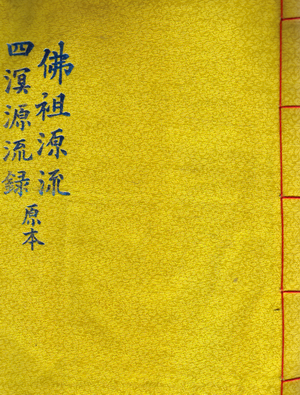 佛祖源流
四溟源流録
原本